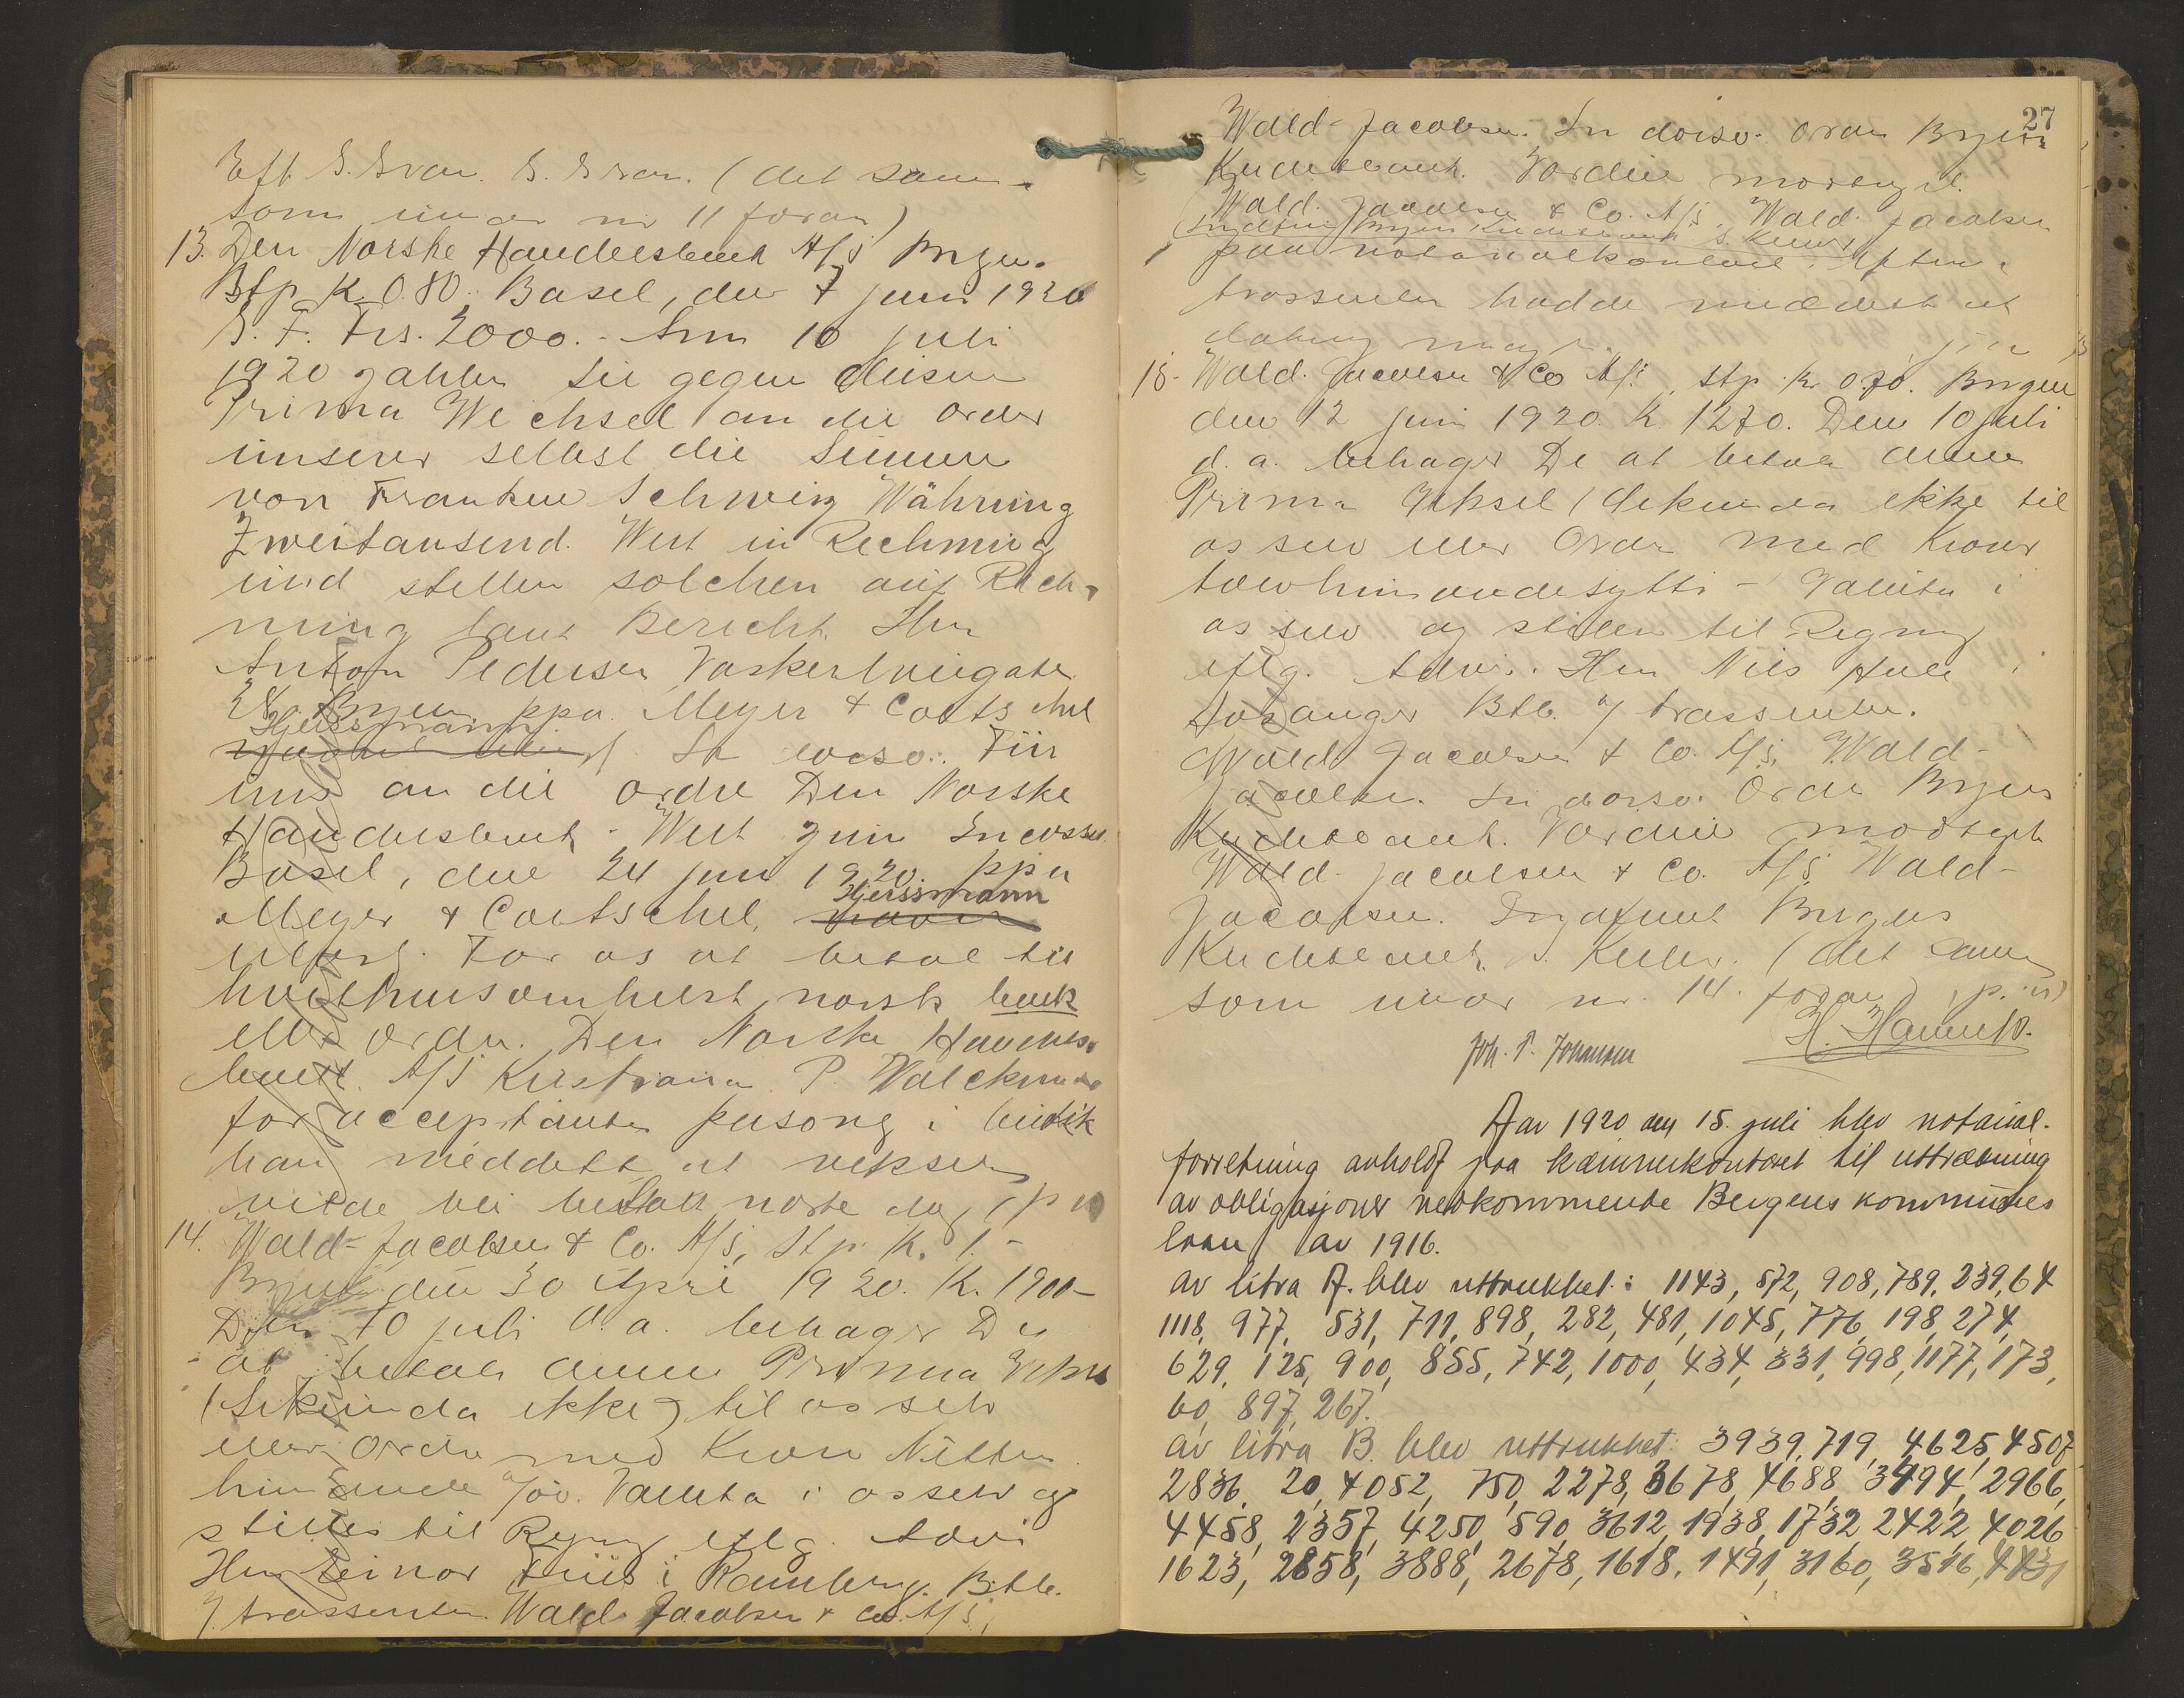 Eft. S. Svar. S. Svar. (det samme
som under nr 11 foran)
13. Den Norske Handelsbank A/S Bergen.
Stp K. 0.80. Basel, den 7 juni 1920
S. F. Frs. 2000.- Am 10 juli
1920 zahlen Sie gegen diesen
Prima Wechsel an die Order
unserer selbst die Summe
von Franken Schweiz Währung
Zweitausend. Wert in Rechnung
und stellen solchen auf Rech-
nung laut Bericht. Herrn
Anton Pedersen Vaskerelvegaten
Bergen ppa. Meyer & Coetschel
Hjerssmann
In dorso: Für
uns an die Ordre Den Norske
Handelsbank. Wert zum Incasso
Basel, den 24 juni 1920. ppa
Hjerssmann
Meyer & Coetschel,
For os at betale til
hvilkensomhelst norsk bank
eller ordre. Den Norske Handels-
bank A/S Kristiania P. Walckn
for acceptanten personlig i butik
han meddelte at vekselen
vilde bli betalt næste dag
14. Wald. Jacobsen & Co. A/S, Stp. K. 1.-
Bergen den 30 April 1920. K. 1900-
Den 10 juli d. a. behager De
at betale denne Prima Veksel
(Sekunda ikke) til os selv
eller Ordre med Kroner Nitten
hundrede 0/00. Valuta i os selv og
stilles til Regning eflg. advis
Herr Einar Friis i Ramberg. Btl.
trassenten Wald. Jacobsen & Co. A/S,
27
Wald. Jacobsen. In dorso: Ordre Bergens
Kreditbank. Værdien modtaget.
Wald. Jacobsen & Co. A/S, Wald. Jacobsen
Bergens Kreditbank
paa notarialkontoret. Efter at
trassenten hadde meddelt at
15. Wald. Jacobsen & Co A/S, Stp. Kr. 0.70. Bergen
den 12 juni 1920. K. 1270. Den 10 juli
d. a. behager De at betale denne
Prima Veksel (Sekunda ikke) til
os selv eller Ordre med Kroner
tolvhundredesytti - Valuta i
os selv og stilles til Regning
eflg. advis. Herr Nils Hole i
Btl. trassenten.
Wald. Jacobsen & Co. A/S, Wald.
Jacobsen. In dorso: Ordre Bergens
Kreditbank. Værdien modtaget
Wald. Jacobsen & Co. A/S Wald.
Jacobsen. Bergens
Kreditbank. (det samme
som under nr. 14. foran)
Joh. P. Johansen
Aar 1920 den 15. juli blev notarial-
forretning avholdt paa kæmnerkontoret til uttrækning
av obligasjoner vedkommende Bergens kommunes
laan av 1916.
av litra A. blev uttrukket: 1143, 572, 908, 789, 239, 64
1118, 977, 531, 711, 898, 282, 481, 1045, 776, 198, 274,
629, 125, 900, 855, 742, 1000, 434, 331, 998, 1177, 173,
60, 897, 267.
av litra B. blev uttrukket: 3939, 719, 4625, 4507
2836, 20, 4052, 750, 2278, 3678, 4688, 3494, 2966,
4458, 2357, 4250, 590, 3612, 1938, 1732, 2422, 4026
1623, 2858, 3888, 2678, 1618, 1491, 3160, 3516, 4431